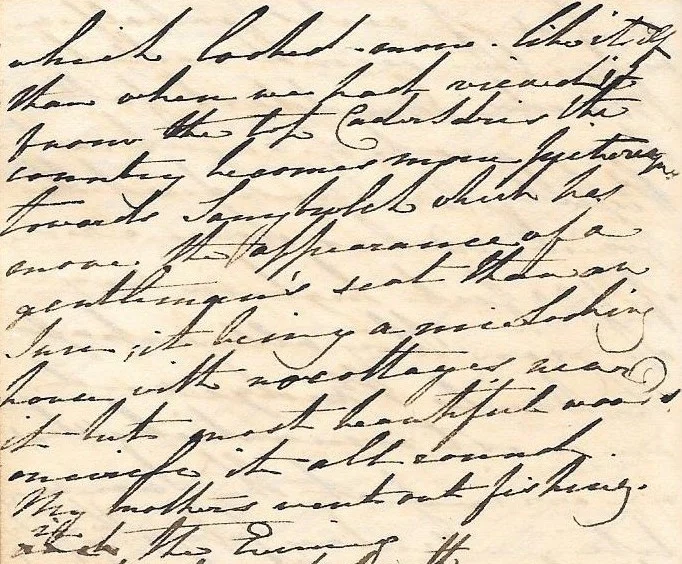 which looked more like itself
than when we had viewed it
from the top Cader Idris the
country becomes more picturesque
towards Tanybwlch which has
more the appearance of a
gentleman's seat than an
Inn; it being a nice looking
house with no cottages near
it but most beautiful woods
it all round.
My mothers went out fishing.
in the Evening